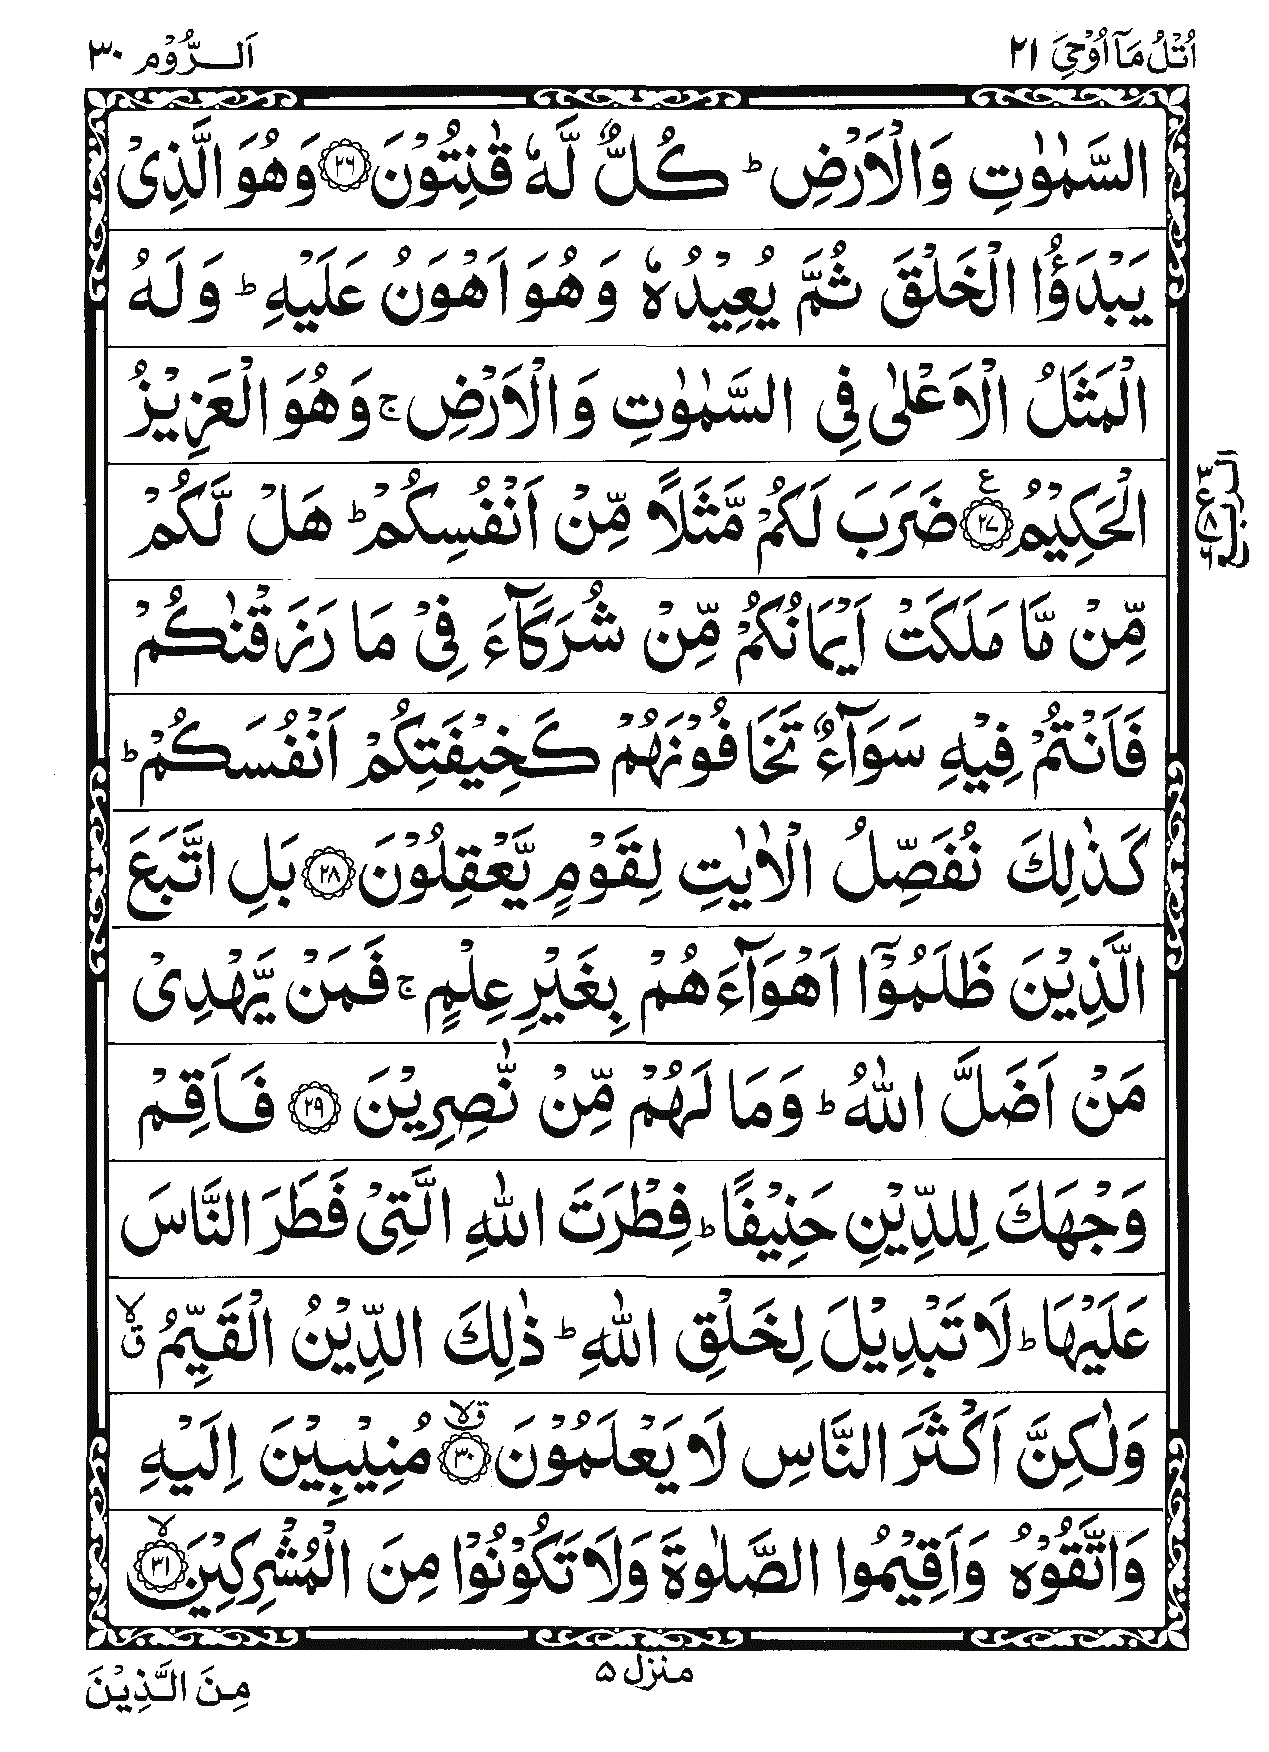 اُتْلُ مَآ اُوْحِیَ ۲۱
اَلرُّوْم ۳۰
السَّمٰوٰتِ وَالْاَرْضِ ؕ كُلٌّ لَّهٗ قٰنِتُوْنَ ﴿۲۶﴾ وَهُوَ الَّذِیْ
یَبْدَؤُا الْخَلْقَ ثُمَّ یُعِیْدُهٗ وَهُوَ اَهْوَنُ عَلَیْهِ ؕ وَلَهُ
الْمَثَلُ الْاَعْلٰی فِی السَّمٰوٰتِ وَالْاَرْضِ ۚ وَهُوَ الْعَزِیْزُ
الْحَكِیْمُ ﴿۲۷﴾ ع ضَرَبَ لَكُمْ مَّثَلًا مِّنْ اَنْفُسِكُمْ ؕ هَلْ لَّكُمْ
مِّنْ مَّا مَلَكَتْ اَیْمَانُكُمْ مِّنْ شُرَكَآءَ فِیْ مَا رَزَقْنٰكُمْ
فَاَنْتُمْ فِیْهِ سَوَآءٌ تَخَافُوْنَهُمْ كَخِیْفَتِكُمْ اَنْفُسَكُمْ ؕ
كَذٰلِكَ نُفَصِّلُ الْاٰیٰتِ لِقَوْمٍ یَّعْقِلُوْنَ ﴿۲۸﴾ بَلِ اتَّبَعَ
الَّذِیْنَ ظَلَمُوْۤا اَهْوَآءَهُمْ بِغَیْرِ عِلْمٍ ۚ فَمَنْ یَّهْدِیْ
مَنْ اَضَلَّ اللّٰهُ ؕ وَمَا لَهُمْ مِّنْ نّٰصِرِیْنَ ﴿۲۹﴾ فَاَقِمْ
وَجْهَكَ لِلدِّیْنِ حَنِیْفًا ؕ فِطْرَتَ اللّٰهِ الَّتِیْ فَطَرَ النَّاسَ
عَلَیْهَا ؕ لَا تَبْدِیْلَ لِخَلْقِ اللّٰهِ ؕ ذٰلِكَ الدِّیْنُ الْقَیِّمُ ۙ ق
وَلٰكِنَّ اَكْثَرَ النَّاسِ لَا یَعْلَمُوْنَ ﴿۳۰﴾ ق ۙ مُنِیْبِیْنَ اِلَیْهِ
وَاتَّقُوْهُ وَاَقِیْمُوا الصَّلٰوةَ وَلَا تَكُوْنُوْا مِنَ الْمُشْرِكِیْنَ ﴿۳۱﴾ ۙ
منزل ۵
مِنَ الَّذِیْنَ